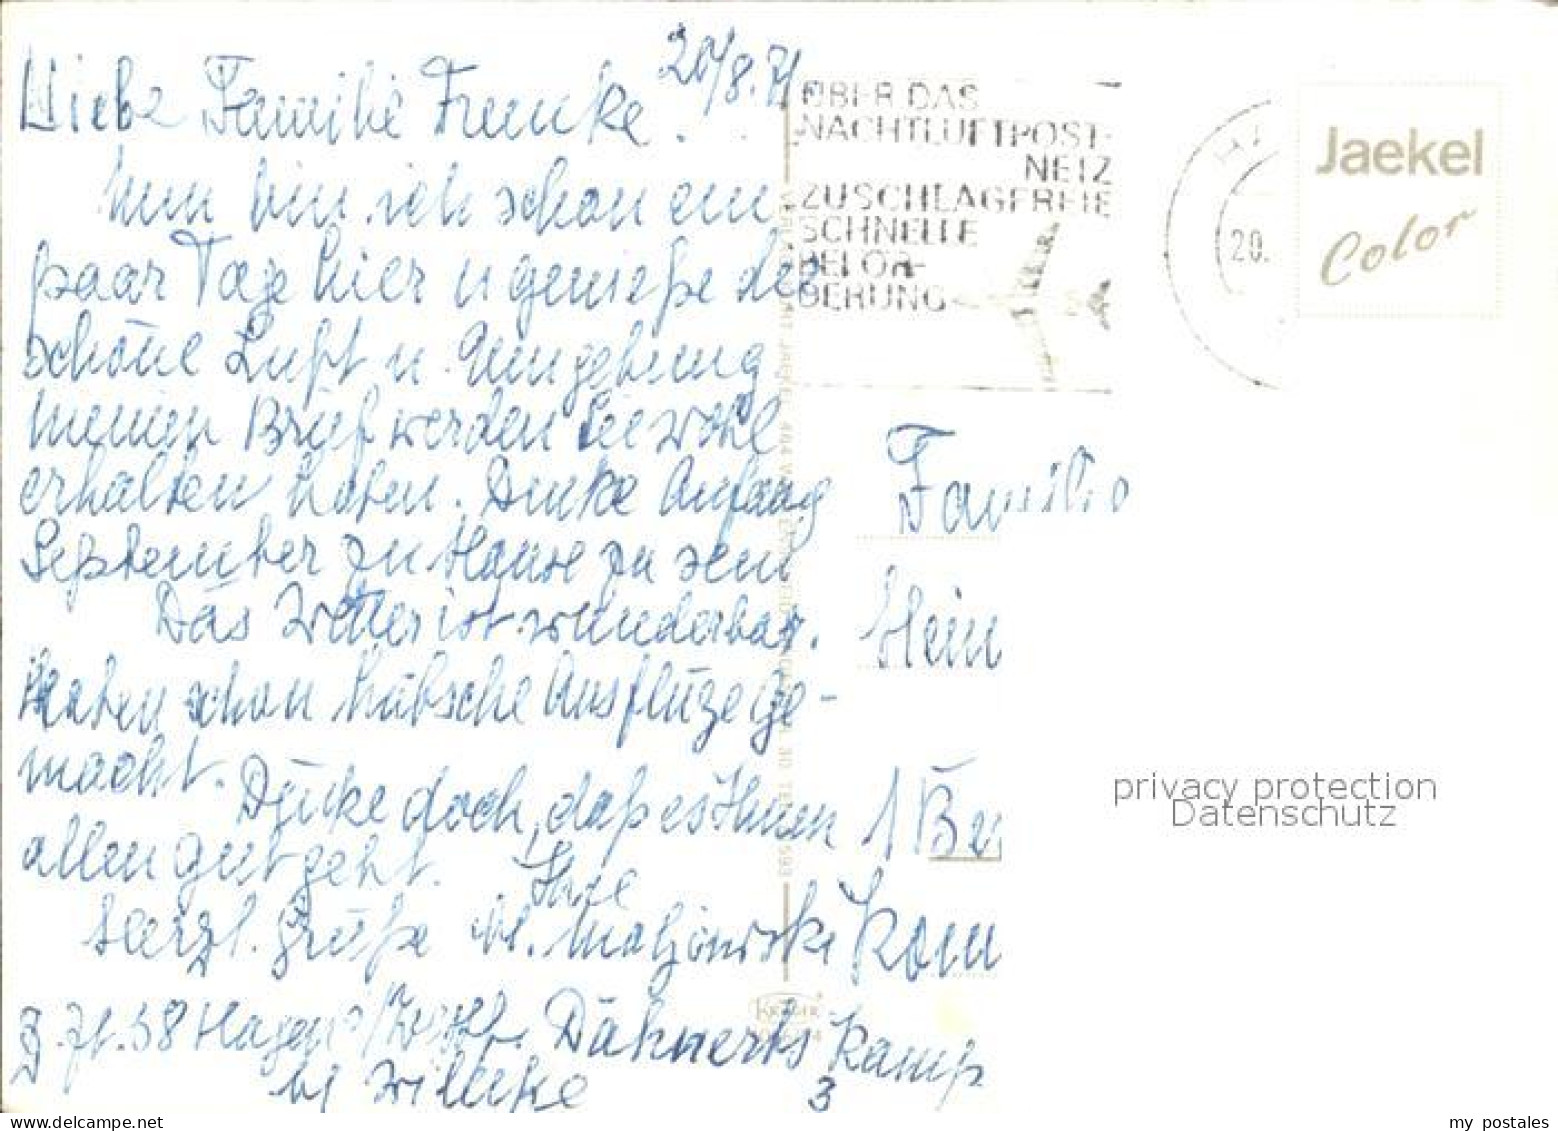 20/8.71
Liebe Familie Funke.
Nun bin ich schon ein
paar Tage hier u genieße die
schöne Luft u. Umgebung
meinen Brief werden Sie wohl
erhalten haben. Denke Anfang
September zu Hause zu sein
Das Wetter ist wunderbar.
Haben schon hübsche Ausflüge ge-
macht.
Denke doch, daß es Ihnen
allen gut geht.
Ihre
Herzl. Grüße M.
Z. Zt. 58 Hagen /Westf. Dähnerts Kamp
3
ÜBER DAS
NACHTLUFTPOST-
NETZ
ZUSCHLAGFREIE
SCHNELLE
BEFÖR-
DERUNG
20.
Jaekel
Color
Familie
Hein
1 Be
privacy protection
Datenschutz
KRÜGER
www.delcampe.net
my_postales